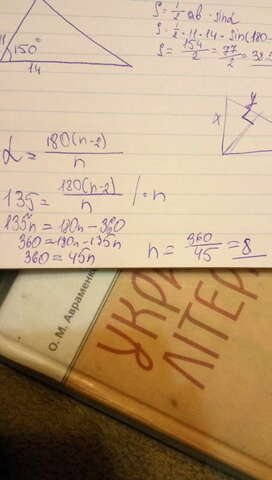 S = 1/2 ab · sinα
S = 1/2 · 11 · 14 · sin(180-
S = 154/2 = 77/2 = 38.5
11
150°
14
x
y
α = 180(n-2)/n
135 = 180(n-2)/n /·n
135n = 180n - 360
360 = 180n - 135n
360 = 45n
n = 360/45 = 8
О. М. Авраменко
УКРА
ЛІТЕР